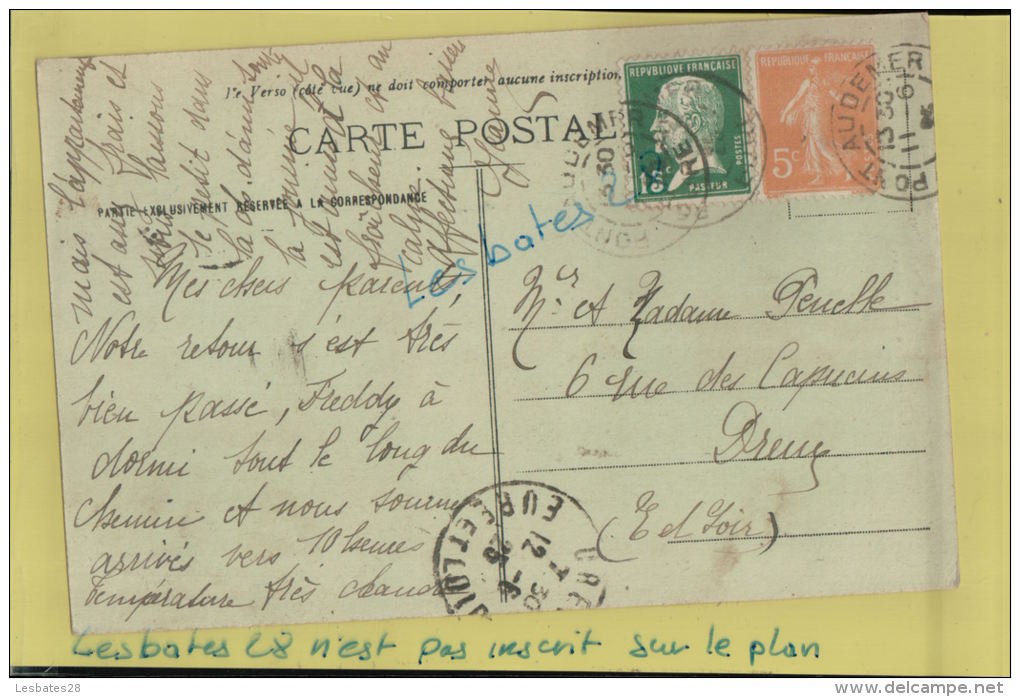 Le Verso (côté vue) ne doit comporter aucune inscription
CARTE POSTALE
PARTIE EXCLUSIVEMENT RÉSERVÉE A LA CORRESPONDANCE
REPVBLIQVE FRANÇAISE
15c
POSTES
PASTEUR
REPUBLIQUE FRANÇAISE
5c
PONT AUDEMER
EURE
13 30
11 6
Mes chers parents,
Notre retour s'est très
bien passé, Freddy à
dormi tout le long du
chemin et nous sommes
arrivés vers 10 heures
Température très chaude
mais l'appartement
est assez frais et
nous
se sent dans
la
est
fraîcheur et au
calme.
Affectueux baisers
Jeanne
Mr et Madame Penelle
6 rue des Capucins
Dreux
(E et Loir)
DREUX
EURE ET LOIR
12
30
Lesbates 28
Lesbates 28 n'est pas inscrit sur le plan
Lesbates28
www.delcampe.net